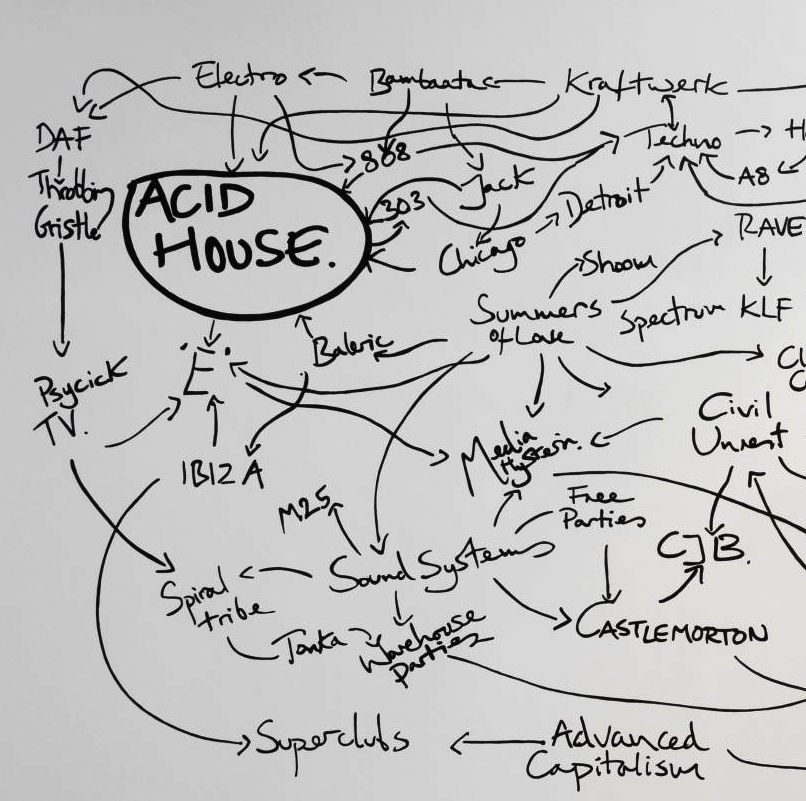 Electro
Bambaataa
Kraftwerk
DAF
808
Techno
H
Throbbing
Gristle
ACID
HOUSE.
303
Jack
A8
Detroit
Chicago
RAVE
Shoom
Summers
of Love
Spectrum
KLF
'E'.
Baleric
Cl
C
Psycick
TV.
Civil
Unrest
Media
Hysteria.
IBIZA
M25
Free
Parties
CJB.
Sound Systems
Spiral
tribe
CASTLEMORTON
Tonka
Warehouse
Parties
Superclubs
Advanced
Capitalism